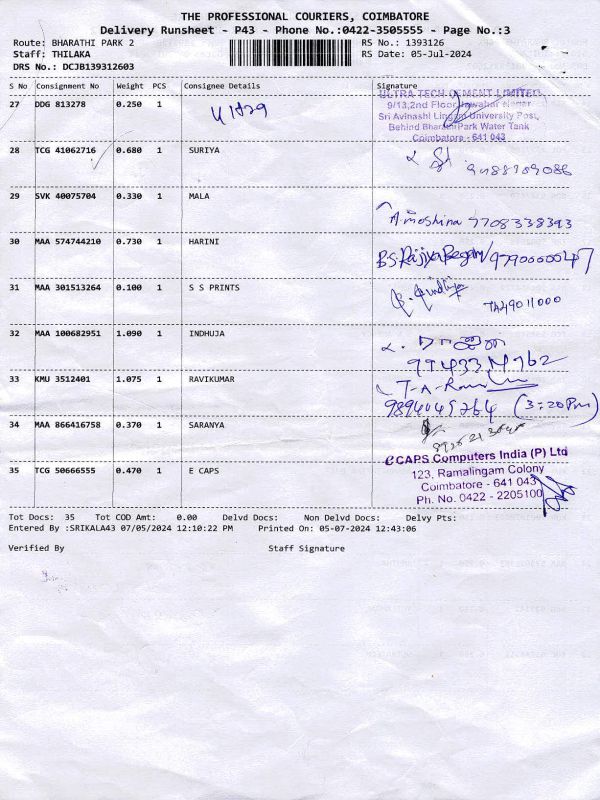 THE PROFESSIONAL COURIERS, COIMBATORE
Delivery Runsheet - P43 - Phone No.:0422-3505555 - Page No.:3
Route: BHARATHI PARK 2 RS No.: 1393126
Staff: THILAKA RS Date: 05-Jul-2024
DRS No.: DCJB139312603
S No Consignment No Weight PCS Consignee Details Signature
27 DDG 813278 0.250 1
ULTRA TECH CEMENT LIMITED
9/13,2nd Floor, Jawahar Nagar
Sri Avinashi Lingam University Post,
Behind Bharathi Park Water Tank
Coimbatore - 641 043
28 TCG 41062716 0.680 1 SURIYA
29 SVK 40075704 0.330 1 MALA
A.moshina 7708338393
30 MAA 574744210 0.730 1 HARINI
31 MAA 301513264 0.100 1 S S PRINTS
32 MAA 100682951 1.090 1 INDHUJA
33 KMU 3512401 1.075 1 RAVIKUMAR
9894045264 (3:20 Pm)
34 MAA 866416758 0.370 1 SARANYA
35 TCG 50666555 0.470 1 E CAPS
eCAPS Computers India (P) Ltd
123, Ramalingam Colony
Coimbatore - 641 043
Ph. No. 0422 - 2205100
Tot Docs: 35 Tot COD Amt: 0.00 Delvd Docs: Non Delvd Docs: Delvy Pts:
Entered By :SRIKALA43 07/05/2024 12:10:22 PM Printed On: 05-07-2024 12:43:06
Verified By Staff Signature